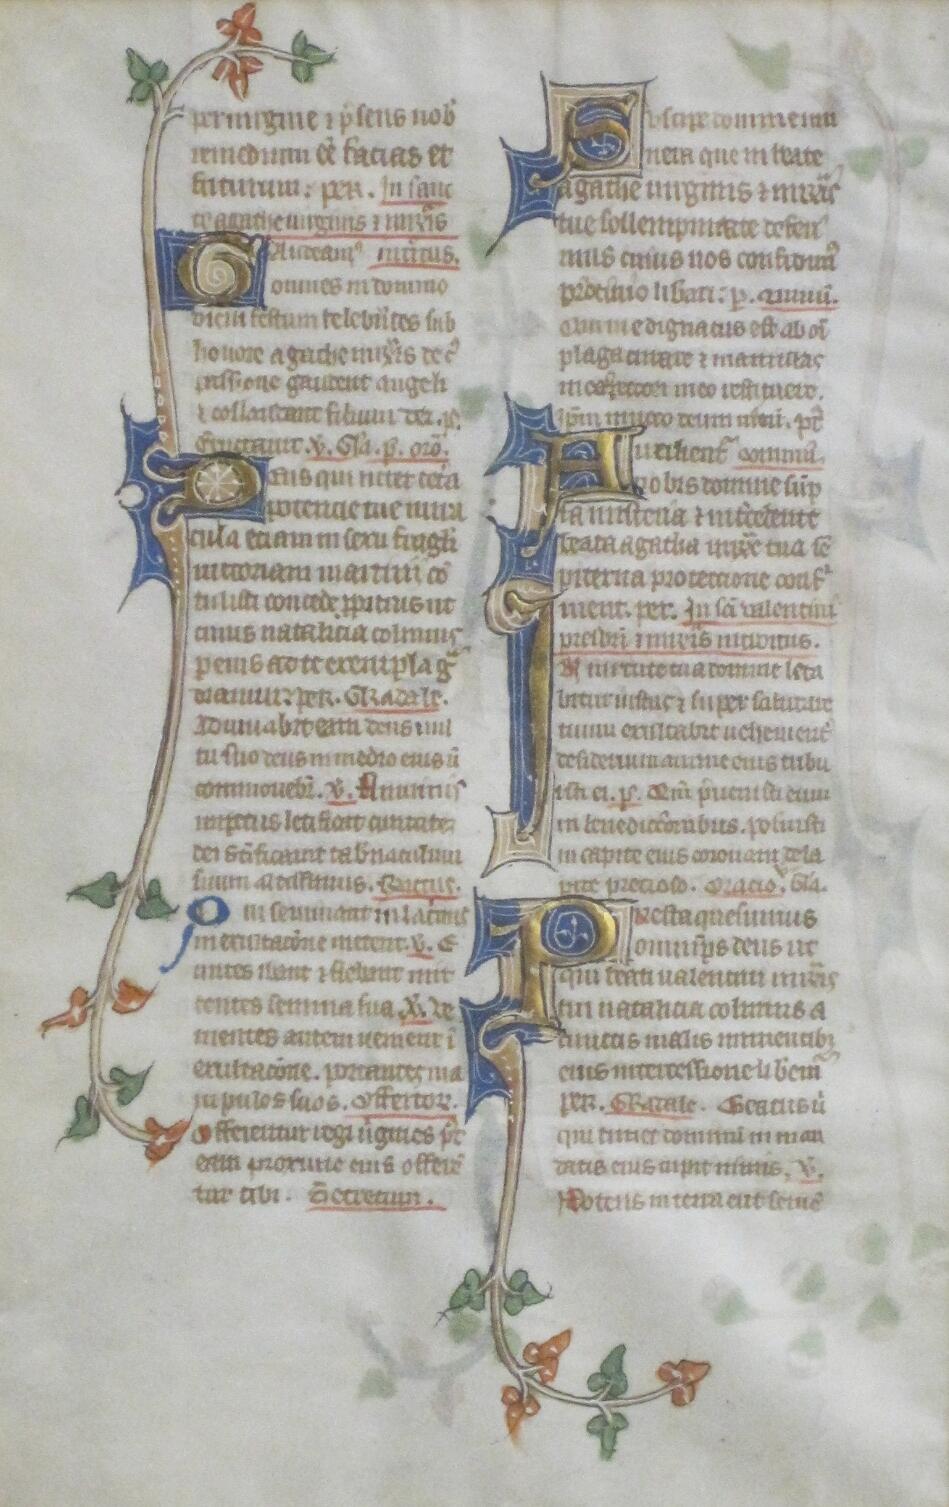 per uirgine ⁊ p̄sens nob̄
remedium ēē facias et
futurum. per. In sanc
te agathe uirginis ⁊ mr̄ris
Gaudeam⁹ introitus.
omnes in domino
diem festum celebrātes sub
honore agathe mr̄ris de c̄
passione gaudent angeli
⁊ collaudant filium dei. p̄.
Eructauit. v. Gla. p. or̄o.
Deus qui inter cetā
potencie tue mira
cula etiam in sexu fragili
uictoriam martirii cō
tulisti concede ꝓpitius ut
cuius natalicia colimus
per eius ad te exempla ḡ
diamur. per. Gradale.
Adiuuabit eam deus uul
tu suo deus in medio eius n̄
commouebr̄. v. fluminis
impetus letificat ciuitatē
dei sc̄ificauit tab̄naculum
suum altissimus. Tractus.
Qui seminant in lac̄mis
in exultacōne metent. v. E
untes ibant ⁊ flebant mit
tentes semina sua. v. Ve
nientes autem uenient ī
exultacōne. portantes ma
nipulos suos. Offertor.
Offerentur regi ūgines p̄t
eam proxime eius offerē
tur tibi. Secretum.
Suscipe domine mu
nera que in beate
agathe uirginis ⁊ mr̄ris
tue sollempnitate deferi
mus cuius nos confidim⁹
p̄rocinio libari. p. 9muniō.
Qui me dignatus est ab oī
plaga curare ⁊ mamillā
meo pectori meo restituere.
ip̄m inuoco deum uiuū. p̄t
Auxilient̄ commū.
nobis domine sūp
ta misteria ⁊ int̄cedente
beata agatha mr̄re tua sē
piterna protectione conf̄
ment. per. In sc̄i ualentini
presbr̄i ⁊ mr̄ris introitus.
In uirtute tua domine leta
bitur iustus ⁊ super salutare
tuum exultabit uehementer
desiderium anime eius tribu
isti ei. p̄. Qm̄ p̄uenisti eum
in benediccōnibus. posuisti
in capite eius coronam de la
pide precioso. Oracio. Gla.
Presta quesumus
omnip̄s deus ut
qui beati ualentini mr̄ris
tui natalicia colimus a
cunctis malis iminentibꝫ
eius intercessione liberem̄
per. Gradale. Beatus ū
qui timet dominū in man
datis eius cupit nimis. v.
Potens in terra erit semē